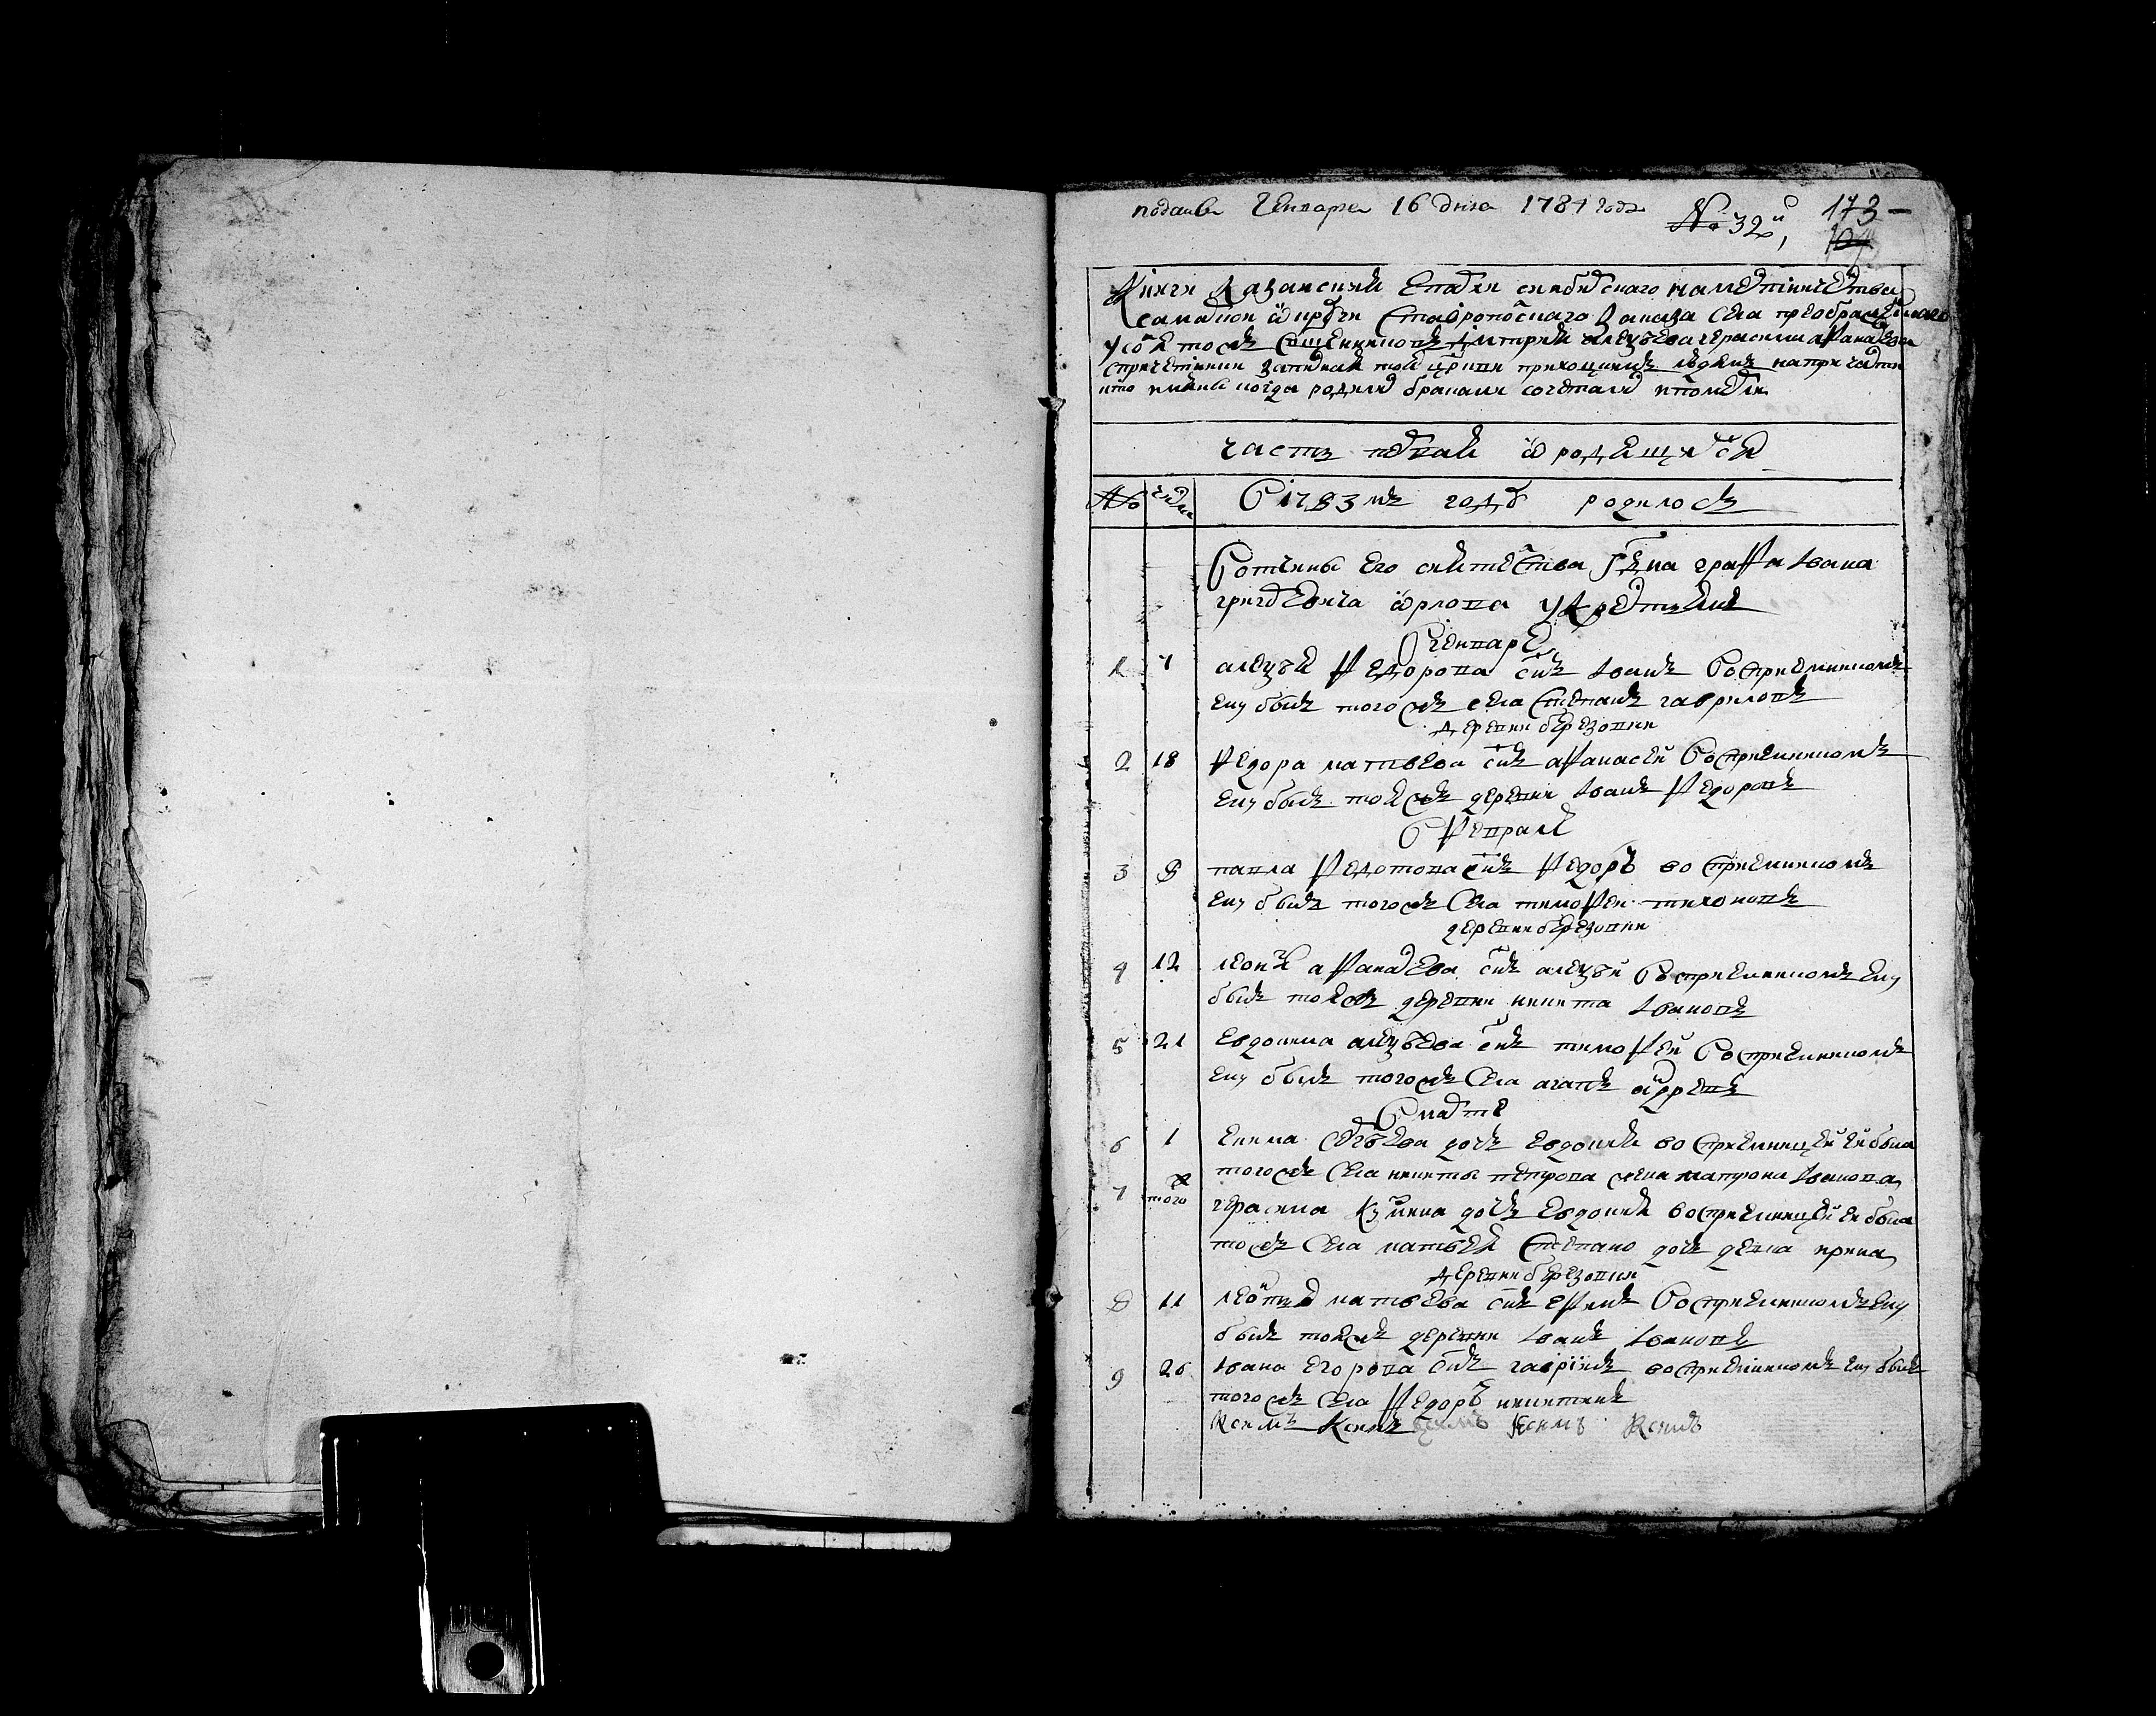 подана Генваря 16 дня 1784 года № 32й 173
Книги Казанской Епархии Симбирскаго наместничества
Самарской округи Ставропольскаго Заказа Села преображенскаго
тоеж Священников Димитрия алеѯеева герасима аѳанасьева
спричетники той церкви приходским людям
кто имяны когда родились браками сочетались и померли
часть первая о родящихся
№ числа В 1783 м году родилось
Вотчины Его сиятельства графа Ивана
григорьевича орлова у крестьян
В генваре
1 7 алеѯея Ѳедорова снъ Иванъ Восприемникомъ
ему былъ тогожъ села Степанъ гавриловъ
деревни березовки
2 18 Ѳедора матвеева снъ аѳанасей Восприемникомъ
ему былъ тояжъ деревни Иванъ Ѳедоровъ
В Ѳеврале
3 8 павла Ѳедотова снъ Ѳедоръ восприемникомъ
ему былъ тогожъ Села тимоѳей тихоновъ
деревни березовки
4 12 леонтя аѳанасьева снъ алеѯей Восприемникомъ ему
былъ тояжъ деревни никита Ивановъ
5 21 Евдокима алеѯеева снъ тимоѳей Восприемникомъ
ему былъ тогожъ Села агапъ андреевъ
В марте
6 1 Екима Сергеева дочь Евдокия восприемницей ей была
тогожъ Села никиты петрова жена матрона Иванова
7 того герасима Кузмина дочь Евдокия восприемницей ей была
тожъ Села матвея Степано дочь девка ирина
деревни березовки
8 11 леонтья матвеева снъ еѳимъ Восприемникомъ ему
былъ тояжъ деревни Иванъ Ивановъ
9 26 Ивана Егорова снъ гаврила восприемникомъ ему былъ
тогожъ Села Ѳедоръ никитинъ
Ксимъ Ксимъ Ксимъ Ксимъ Ксимъ